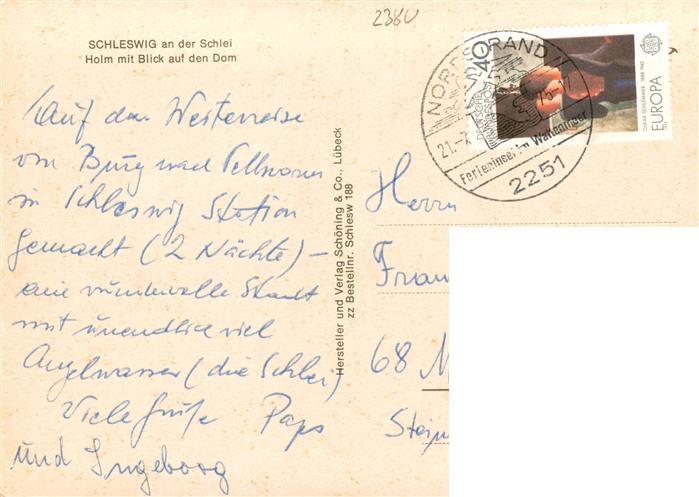 2380
SCHLESWIG an der Schlei
Holm mit Blick auf den Dom
Auf der Weiterreise
von Burg nach Pellworm
in Schleswig Station
gemacht (2 Nächte) –
eine wundervolle Stadt
mit unendlich viel
Angelwasser (die Schlei)
Viele Grüße Paps
und Ingeborg
Hersteller und Verlag Schöning & Co., Lübeck
zz Bestellnr. Schlesw 188
NORDSTRAND
21.-7.75-17
Ferieninsel im Wattenmeer
2251
40
DEUTSCHE BUNDESPOST
EUROPA
OSKAR SCHLEMMER 1888-1943
Herrn
Fran
68 M
Stein